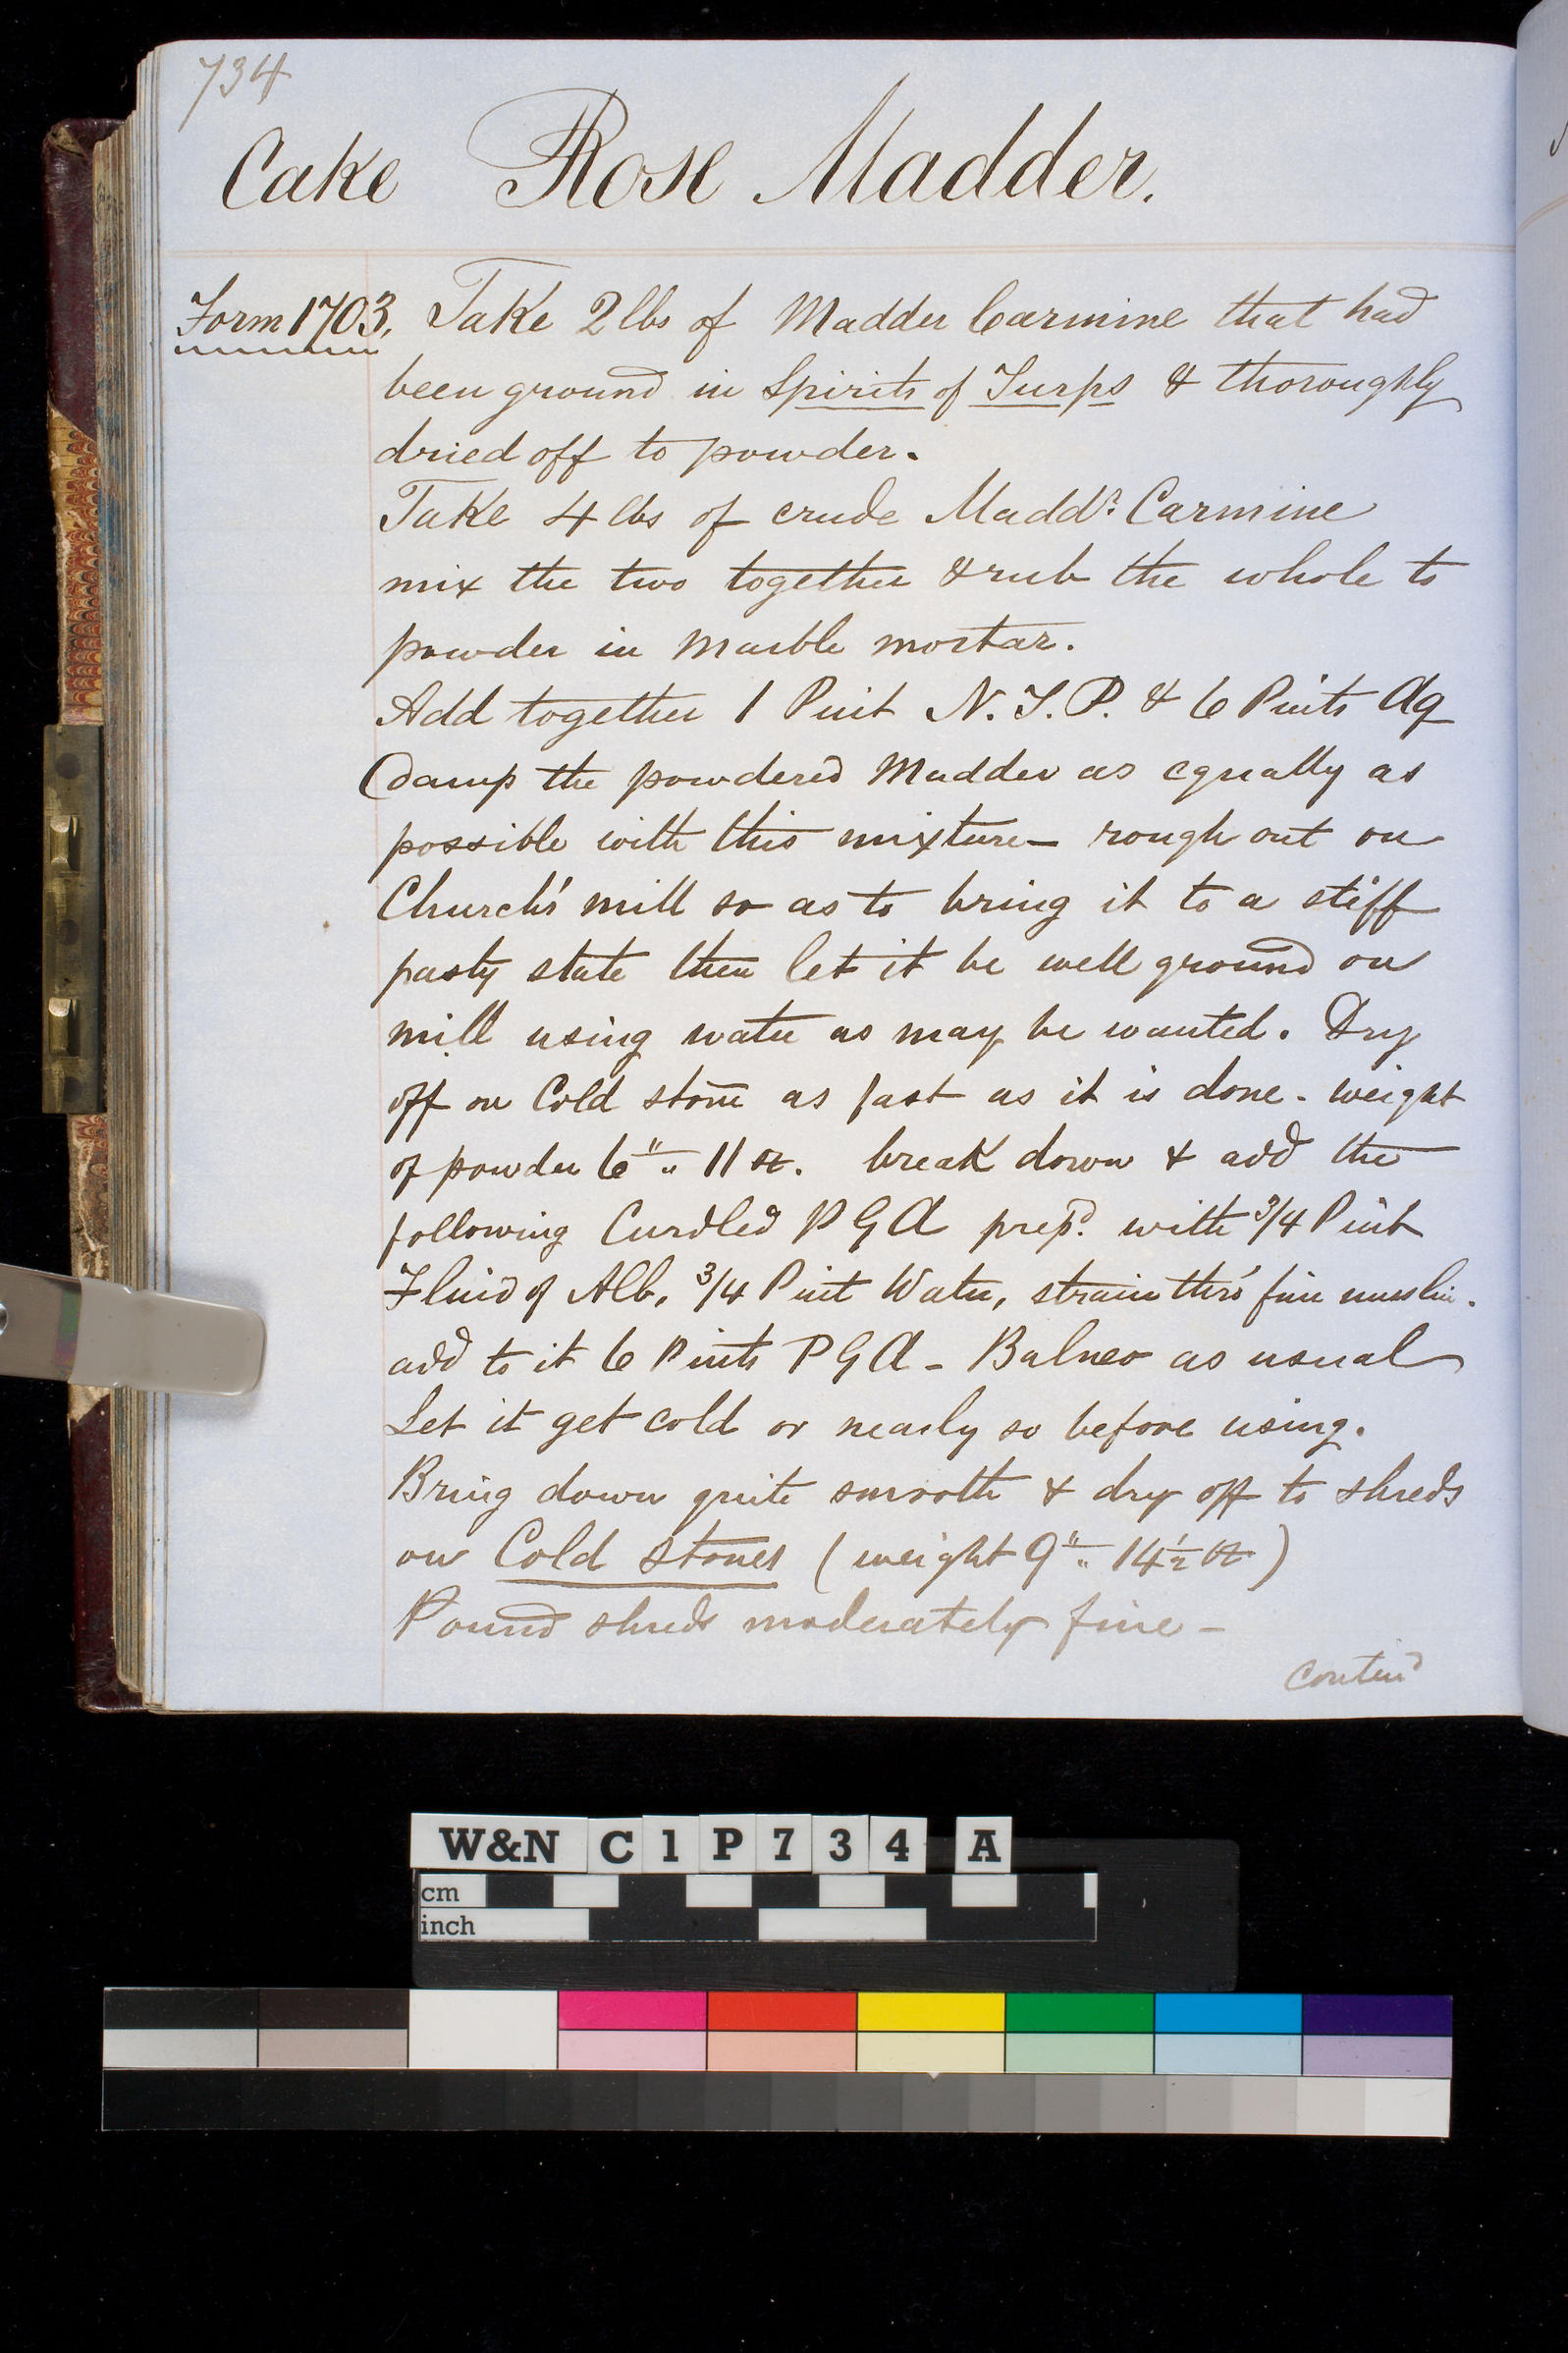 734
Cake Rose Madder.
Form 1703. Take 2 lbs of Madder Carmine that had
been ground in Spirits of Turps & thoroughly
dried off to powder.
Take 4 lbs of crude Maddr. Carmine
mix the two together & rub the whole to
powder in Marble mortar.
Add together 1 Pint N. S. P. & 6 Pints Aq
(damp the powdered Madder as equally as
possible with this mixture - rough out on
Church's mill so as to bring it to a stiff
pasty state then let it be well ground on
mill using water as may be wanted. Dry
off on Cold stone as fast as it is done - weight
of powder 6 " 11 oz. break down & add the
following Curdled P G A prepd. with 3/4 Pint
Fluid of Alb, 3/4 Pint Water, strain thro' fine muslin.
add to it 6 Pints P G A - Balneo as usual
Let it get cold or nearly so before using.
Bring down quite smooth & dry off to shreds
on Cold stones (weight 9 " 14 1/2 oz)
Pound shreds moderately fine -
Contind
W&N C1P734 A
cm
inch